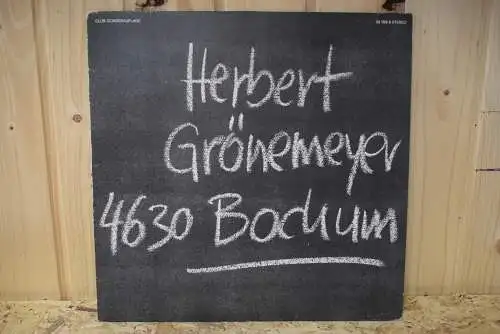 CLUB-SONDERAUFLAGE
Herbert
Grönemeyer
4630 Bochum